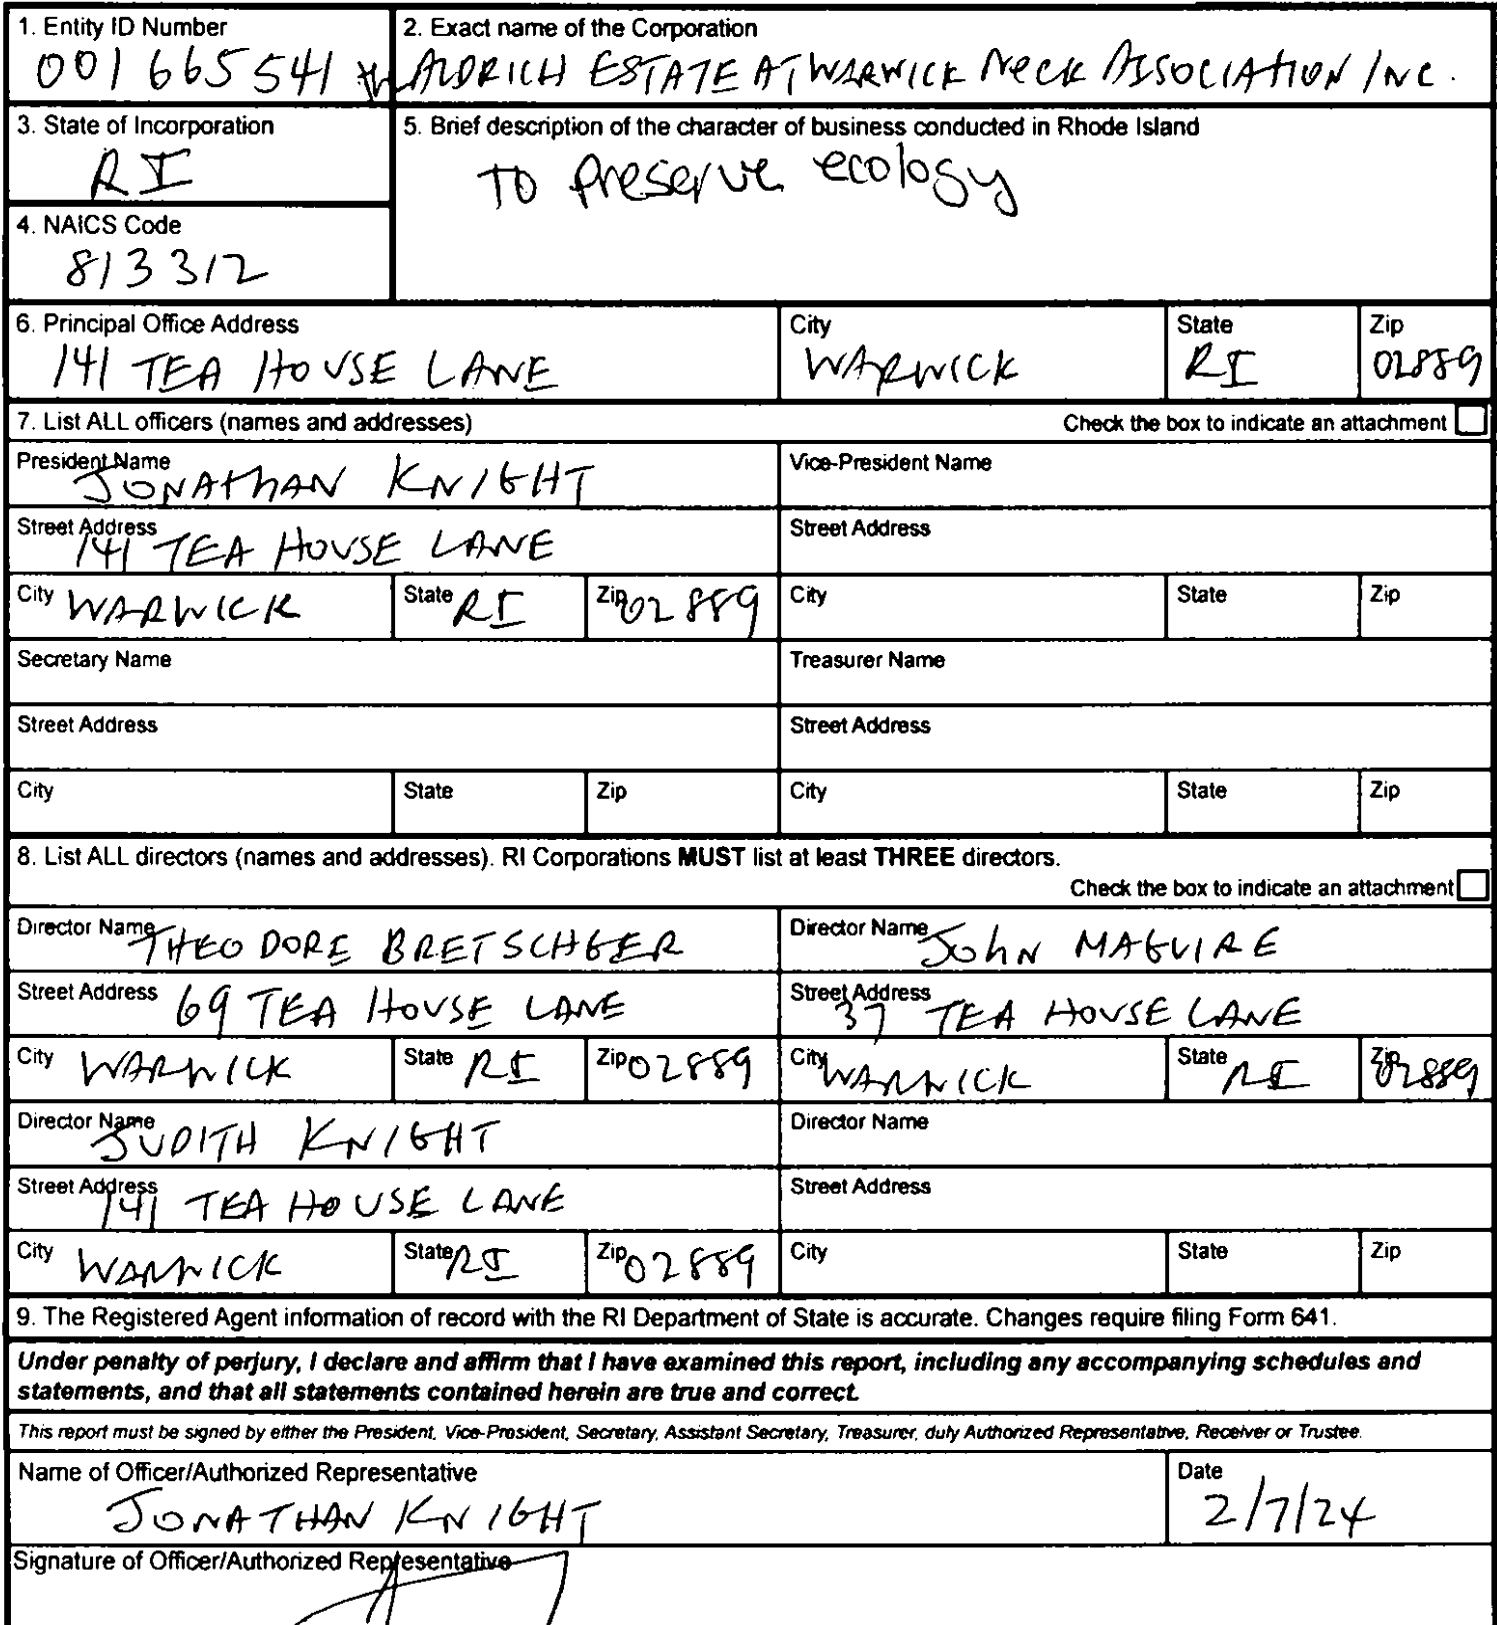 1. Entity ID Number
001665541
2. Exact name of the Corporation
The ALDRICH ESTATE AT WARWICK NECK ASSOCIATION INC.
3. State of Incorporation
RI
5. Brief description of the character of business conducted in Rhode Island
TO Preserve ecology
4. NAICS Code
813312
6. Principal Office Address
141 TEA HOUSE LANE
City
WARWICK
State
RI
Zip
02889
7. List ALL officers (names and addresses)
Check the box to indicate an attachment
President Name
JONAThAN KNIGHT
Vice-President Name
Street Address
141 TEA HOUSE LANE
Street Address
City WARWICK State RI Zip 02889 City State Zip
Secretary Name
Treasurer Name
Street Address
Street Address
City State Zip City State Zip
8. List ALL directors (names and addresses). RI Corporations MUST list at least THREE directors.
Check the box to indicate an attachment
Director Name THEODORE BRETSCHGER
Director Name JohN MAGUIRE
Street Address 69 TEA HOUSE LANE
Street Address 37 TEA HOUSE LANE
City WARWICK State RI Zip 02889 City WARWICK State RI Zip 02889
Director Name JUDITH KNIGHT
Director Name
Street Address 141 TEA HOUSE LANE
Street Address
City WARWICK State RI Zip 02889 City State Zip
9. The Registered Agent information of record with the RI Department of State is accurate. Changes require filing Form 641.
Under penalty of perjury, I declare and affirm that I have examined this report, including any accompanying schedules and
statements, and that all statements contained herein are true and correct.
This report must be signed by either the President, Vice-President, Secretary, Assistant Secretary, Treasurer, duly Authorized Representative, Receiver or Trustee.
Name of Officer/Authorized Representative
JONATHAN KNIGHT
Date
2/7/24
Signature of Officer/Authorized Representative